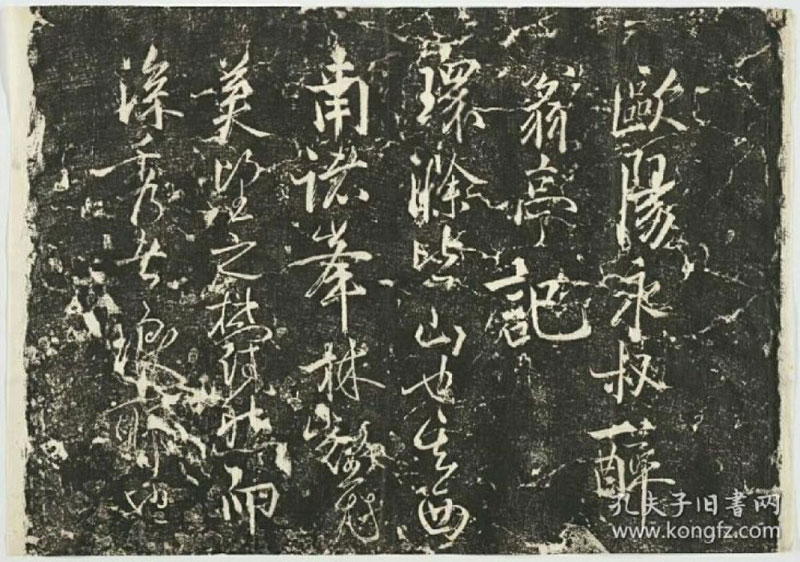 歐陽永叔醉
翁亭記
環滁皆山也其西
南諸峯林壑尤
美望之蔚然而
深秀者瑯琊也
孔夫子旧书网
www.kongfz.com